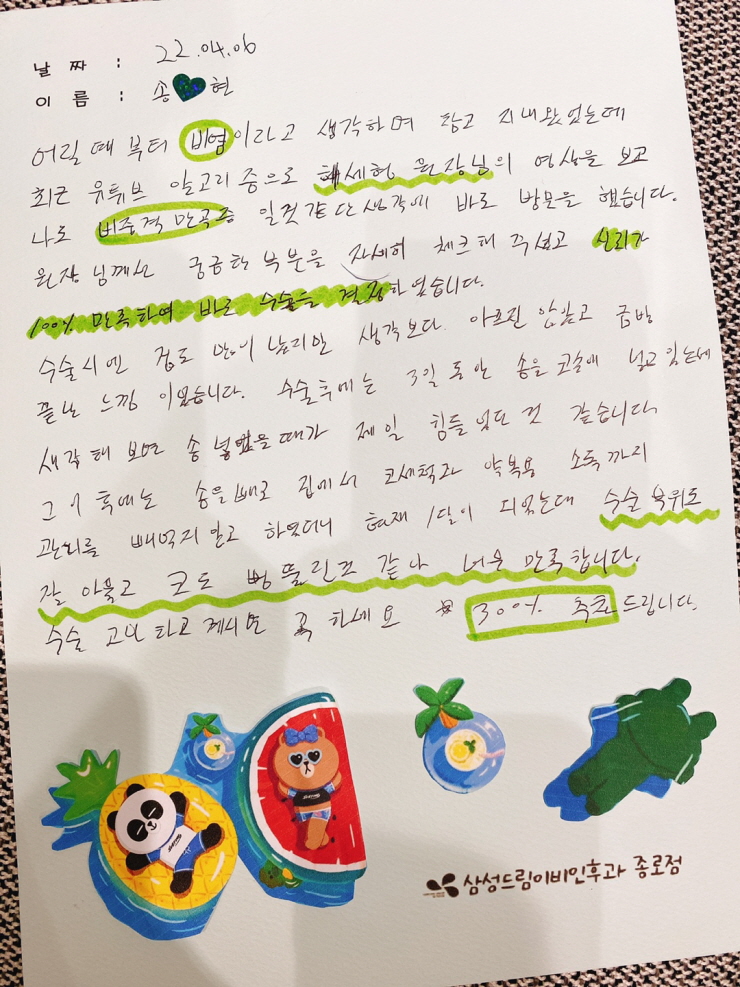 날 짜 : 22.04.06
이 름 : 송💚현
어릴 때 부터 비염이라고 생각하며 참고 지내왔었는데
최근 유튜브 알고리즘으로 세현 원장님의 영상을 보고
나도 비중격 만곡증 일것 같단 생각에 바로 방문을 했습니다.
원장님께선 궁금한 부분을 자세히 체크해 주셨고 신뢰가
100% 만족하여 바로 수술을 결정하였습니다.
수술시엔 겁도 많이 났지만 생각보다 아프진 않았고 금방
끝난 느낌 이었습니다. 수술후에는 3일 동안 솜을 코속에 넣고 있는데
생각해 보면 솜 넣었을때가 제일 힘들었던 것 같습니다.
그 이후에는 솜을 빼고 집에서 코세척과 약복용 소독까지
관리를 빼먹지 않고 하였더니 현재 1달이 되었는데 수술 부위도
잘 아물고 코도 뻥 뚫린것 같아 너무 만족합니다.
수술 고민 하고 계시면 꼭 하세요 300% 추천드립니다.
삼성드림이비인후과 종로점